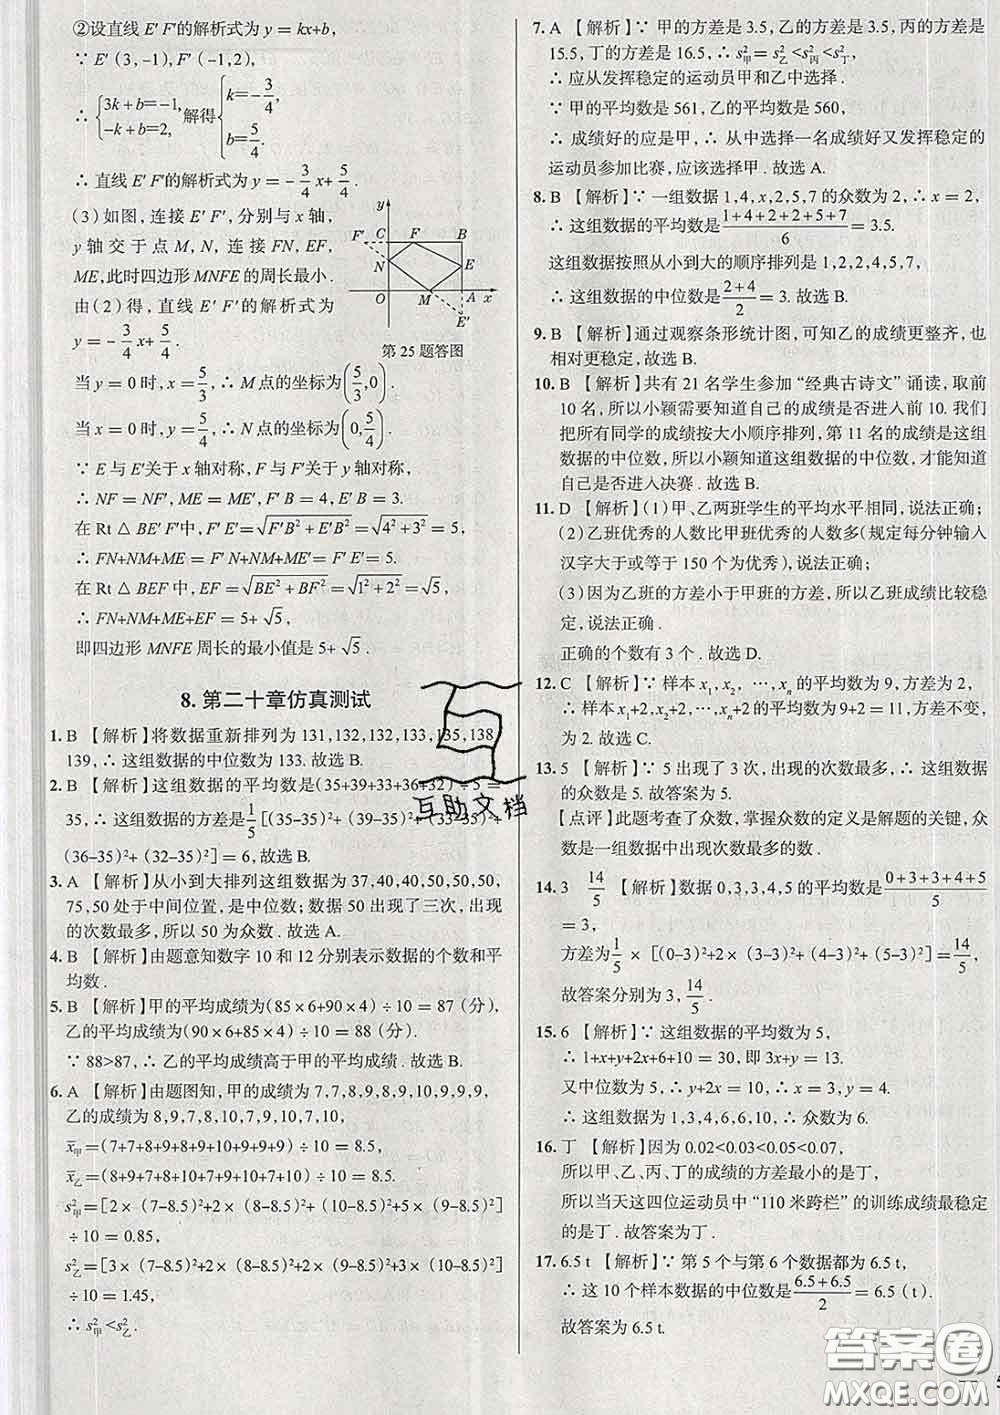 ②设直线 E′ F′的解析式为 y = kx+b，
∵ E′ (3,-1), F′ (-1,2),
∴ {3k+b=-1, -k+b=2, 解得 {k=-3/4, b=5/4.
∴ 直线 E′ F′的解析式为 y = - 3/4 x+ 5/4 .
(3)如图, 连接 E′ F′, 分别与 x 轴,
y 轴交于点 M, N, 连接 FN, EF,
ME, 此时四边形 MNFE 的周长最小 .
由(2)得, 直线 E′ F′的解析式为
y = - 3/4 x+ 5/4 .
y
F′ C F B
N E
O M A x
E′
第 25 题答图
当 y = 0 时, x = 5/3, ∴ M 点的坐标为(5/3,0) .
当 x = 0 时, y = 5/4, ∴ N 点的坐标为(0,5/4) .
∵ E 与 E′关于 x 轴对称, F 与 F′关于 y 轴对称,
∴ NF = NF′, ME = ME′, F′ B = 4, E′ B = 3.
在 Rt △ BE′ F′中, F′ E′= √(F′B²+E′B²) = √(4²+3²) = 5,
∴ FN+NM+ME = F′ N+NM+ME′ = F′E′ = 5.
在 Rt △ BEF 中, EF = √(BE²+BF²) = √(1²+2²) = √5,
∴ FN+NM+ME+EF = 5+ √5,
即四边形 MNFE 周长的最小值是 5+ √5.
8. 第二十章仿真测试
1. B 【解析】将数据重新排列为 131,132,132,133,135,138,
139, ∴ 这组数据的中位数为 133. 故选 B.
2. B 【解析】这组数据的平均数是(35+39+33+36+32) ÷ 5 =
35, ∴ 这组数据的方差是 1/5 [(35-35)²+ (39-35)²+ (33-35)²+
(36-35)²+ (32-35)²] = 6, 故选 B.
3. A 【解析】从小到大排列这组数据为 37,40,40,50,50,50,
75,50 处于中间位置, 是中位数; 数据 50 出现了三次, 出现
的次数最多, 所以 50 为众数 . 故选 A.
4. B 【解析】由题意知数字 10 和 12 分别表示数据的个数和平
均数 .
5. B 【解析】甲的平均成绩为(85×6+90×4) ÷10 = 87 (分),
乙的平均成绩为(90×6+85×4) ÷10 = 88 (分) .
∵ 88>87, ∴ 乙的平均成绩高于甲的平均成绩 . 故选 B.
6. A 【解析】由题图知, 甲的成绩为 7,7,8,9,8,9,10,9,9,9,
乙的成绩为 8,9,7,8,10,7,9,10,7,10,
x̄甲=(7+7+8+9+8+9+10+9+9+9) ÷10 = 8.5,
x̄乙=(8+9+7+8+10+7+9+10+7+10) ÷10 = 8.5,
s²甲=[2×(7-8.5)²+2×(8-8.5)²+(10-8.5)²+5×(9-8.5)²]
÷10 = 0.85,
s²乙=[3×(7-8.5)²+2×(8-8.5)²+2×(9-8.5)²+3×(10-8.5)²]
÷10 = 1.45,
∴ s²甲 < s²乙 .
7. A 【解析】∵ 甲的方差是 3.5, 乙的方差是 3.5, 丙的方差是
15.5, 丁的方差是 16.5, ∴ s²甲 = s²乙 < s²丙 < s²丁,
∴ 应从发挥稳定的运动员甲和乙中选择 .
∵ 甲的平均数是 561, 乙的平均数是 560,
∴ 成绩好的应是甲, ∴ 从中选择一名成绩好又发挥稳定的
运动员参加比赛, 应该选择甲 . 故选 A.
8. B 【解析】∵ 一组数据 1,4,x,2,5,7 的众数为 2, ∴ x = 2,
∴ 这组数据的平均数是 (1+4+2+2+5+7)/6 = 3.5.
这组数据按照从小到大的顺序排列是 1,2,2,4,5,7,
∴ 这组数据的中位数是 (2+4)/2 = 3. 故选 B.
9. B 【解析】通过观察条形统计图, 可知乙的成绩更整齐, 也
相对更稳定, 故选 B.
10. B 【解析】共有 21 名学生参加 “经典古诗文” 诵读, 取前
10 名, 所以小颖需要知道自己的成绩是否进入前 10. 我们
把所有同学的成绩按大小顺序排列, 第 11 名的成绩是这组
数据的中位数, 所以小颖知道这组数据的中位数, 才能知道
自己是否进入决赛 . 故选 B.
11. D 【解析】(1)甲、乙两班学生的平均水平相同, 说法正确;
(2)乙班优秀的人数比甲班优秀的人数多(规定每分钟输入
汉字大于或等于 150 个为优秀), 说法正确;
(3)因为乙班的方差小于甲班的方差, 所以乙班成绩比较稳
定, 说法正确 .
正确的个数有 3 个 . 故选 D.
12. C 【解析】∵ 样本 x₁, x₂, …, xₙ 的平均数为 9, 方差为 2,
∴ 样本 x₁+2, x₂+2, …, xₙ+2 的平均数为 9+2 = 11, 方差不变,
为 2. 故选 C.
13. 5 【解析】∵ 5 出现了 3 次, 出现的次数最多, ∴ 这组数据
的众数是 5. 故答案为 5.
【点评】此题考查了众数, 掌握众数的定义是解题的关键, 众
数是一组数据中出现次数最多的数 .
14. 3 14/5 【解析】数据 0,3,3,4,5 的平均数是 (0+3+3+4+5)/5
= 3,
方差为 1/5 × [(0-3)²+(3-3)²+(3-3)²+(4-3)²+(5-3)²] = 14/5,
故答案分别为 3, 14/5 .
15. 6 【解析】∵ 这组数据的平均数为 5,
∴ 1+x+y+2x+6+10 = 30, 即 3x+y = 13.
又中位数为 5, ∴ y+2x = 10, ∴ x = 3, y = 4.
∴ 这组数据为 1,3,4,6,6,10, ∴ 众数为 6.
16. 丁 【解析】因为 0.02<0.03<0.05<0.07,
所以甲、乙、丙、丁的成绩的方差最小的是丁,
所以当天这四位运动员中 “110 米跨栏” 的训练成绩最稳定
的是丁 . 故答案为丁 .
17. 6.5 t 【解析】∵ 第 5 个与第 6 个数据都为 6.5 t,
∴ 这 10 个样本数据的中位数是 (6.5+6.5)/2 = 6.5 (t) .
故答案为 6.5 t.
互助文档
答案圈
MXQE.COM